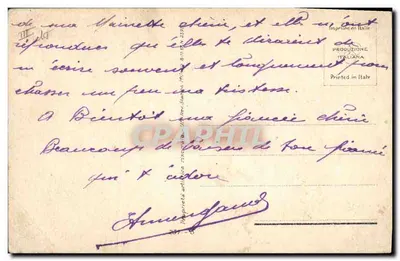 de ma Mainette chérie, et elle m'ont
répondues qu'elles te diraient de
m'écrire souvent et longuement pour
chasser un peu ma tristesse.
A Bientôt ma fiancée chérie
Beaucoup de baisers de ton fiancé
qui t'adore
PRODUZIONE
ITALIANA
Printed in Italy
CPARAMA